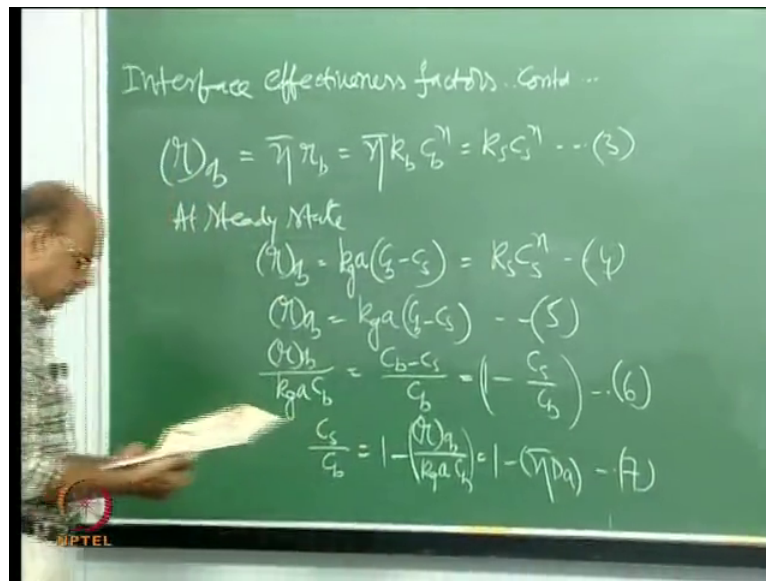 Interface effectiveness factors..Contd...
(r)_b = η̄ r_b = η̄ k_b C_b^n = k_s C_s^n --- (3)
At steady state
(r)_b = k_g a (C_b - C_s) = k_s C_s^n - (4)
(r)_b = k_g a (C_b - C_s) --- (5)
(r)_b / k_g a C_b = (C_b - C_s) / C_b = (1 - C_s / C_b) --- (6)
C_s / C_b = 1 - ((r)_b / k_g a C_b) = 1 - (η̄ Da) --- (7)
NPTEL